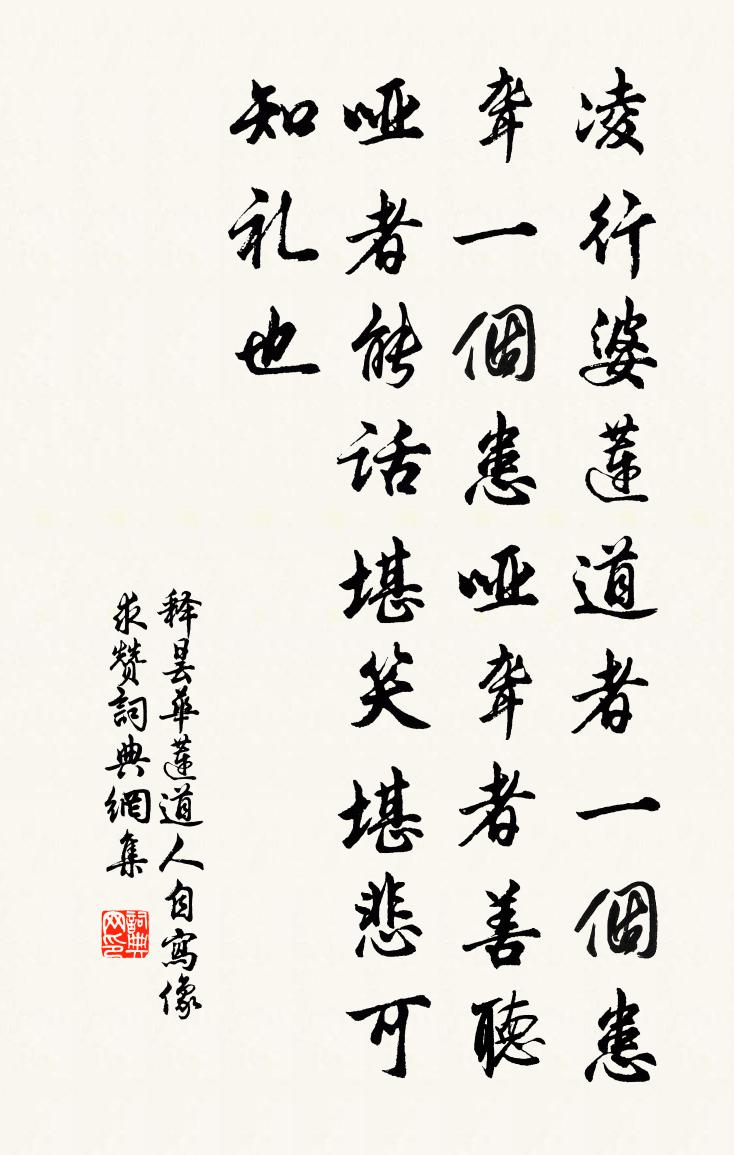 凌行婆蓮道者一個患
聋一個患哑聋者善聽
哑者能话堪笑堪悲可
知礼也
释曇華蓮道人自寫像
求赞詞典網集
詞典网印